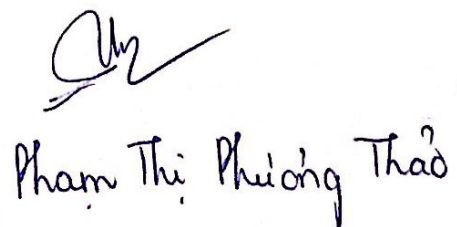 Phạm Thị Phương Thảo